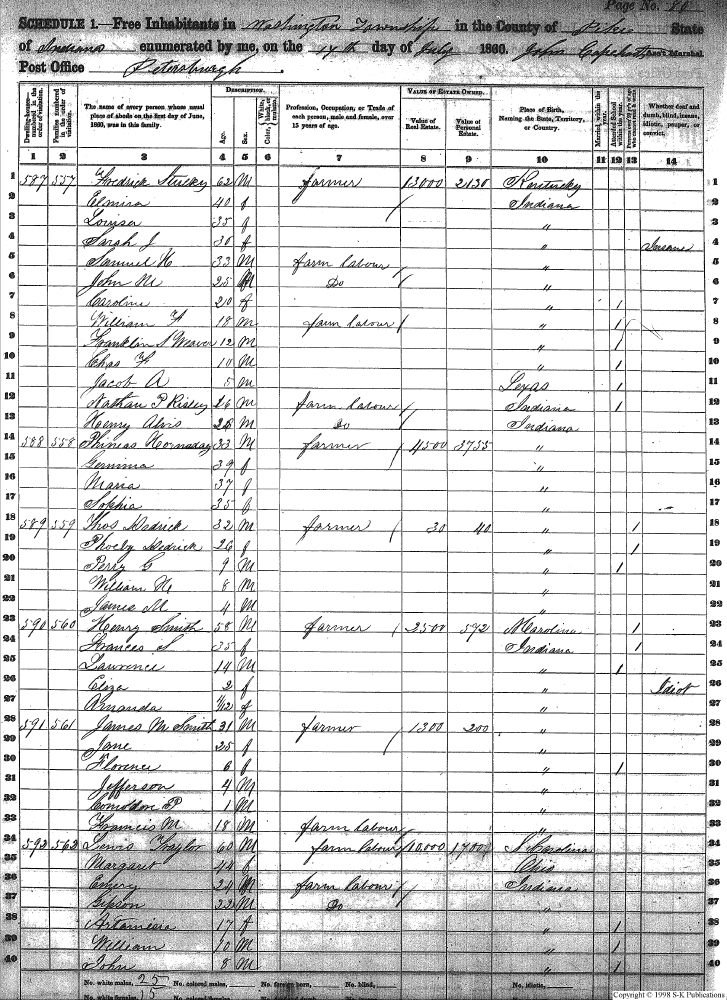 Page No. 80
SCHEDULE 1.—Free Inhabitants in Washington Township in the County of Pike State
of Indiana enumerated by me, on the 17th day of July 1860. John Ass't Marshal.
Post Office Petersburgh.
DESCRIPTION. VALUE OF ESTATE OWNED.
Dwelling-houses numbered in the order of visitation. Families numbered in the order of visitation. The name of every person whose usual place of abode on the first day of June, 1860, was in this family. Age. Sex. Color, White, black, or mulatto. Profession, Occupation, or Trade of each person, male and female, over 15 years of age. Value of Real Estate. Value of Personal Estate. Place of Birth, Naming the State, Territory, or Country. Married within the year. Attended School within the year. Whether deaf and dumb, blind, insane, idiotic, pauper, or convict.
1 2 3 4 5 6 7 8 9 10 11 12 13 14
1 587 557 Fredrick Stuckey 62 M farmer 13000 2130 Kentucky 1
2 Elmira 40 f Indiana 2
3 Louisa 35 f " 3
4 Sarah J 30 f " Insane 4
5 Samuel H 33 M farm labour " 5
6 John M 25 M Do " 6
7 Caroline 20 f " 1 7
8 William F 18 M farm labour " 1 8
9 Franklin S Weaver 12 M " 1 9
10 Chas F 10 M " 1 10
11 Jacob A 5 M Texas 1 11
12 Nathan P Risley 26 M farm labour Indiana 1 12
13 Henry Alvis 28 M Do Indiana 13
14 588 558 Phineas Hornaday 33 M farmer 4500 3755 " 14
15 Gemima 39 f " 15
16 Maria 37 f " 16
17 Sophia 35 f " 17
18 589 559 Thos Dedrick 32 M farmer 30 40 " 1 18
19 Phoeby Dedrick 26 f " 1 19
20 Perry G 9 M " 1 20
21 William H 8 M " 21
22 James M 4 M " 22
23 590 560 Henry Smith 58 M farmer 2500 592 N Carolina 1 23
24 Frances S 35 f Indiana 1 24
25 Lawrence 14 M " 1 25
26 Eliza 2 f " Idiot 26
27 Amanda f " 27
28 591 561 James M Smith 31 M farmer 1300 200 " 28
29 Jane 25 f " 29
30 Florence 6 f " 1 30
31 Jefferson 4 M " 31
32 P 1 M " 32
33 Francis M 18 M farm labour " 33
34 592 562 Lewis Traylor 60 M farm labour 10,000 1700 S Carolina 34
35 Margaret 44 f Ohio 35
36 Emery 24 M farm labour Indiana 36
37 Gipson 22 M Do " 37
38 Artamisia 17 f " 1 38
39 William 10 M " 1 39
40 John 8 M " 1 40
No. white males, 25 No. colored males, No. foreign born, No. blind, No. idiotic,
No. white females, 15 No. colored females,
Copyright © 1998 S-K Publications